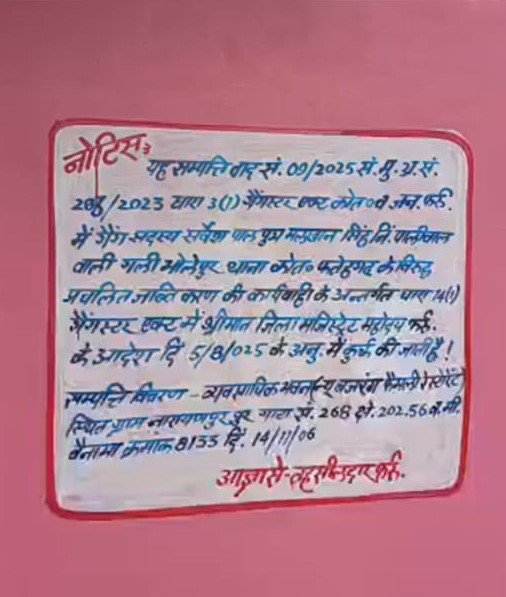 नोटिस:
यह सम्पत्ति वाद सं. 09/2025 सं. मु. अ. सं.
/2023 धारा 3(1) गैंगस्टर एक्ट कोत० व जन. फर्रु.
में गैंग सदस्य सर्वेश पाल पुत्र मलखान सिंह नि. पालीवाल
वाली गली भोलेपुर थाना कोत० फतेहगढ़ के विरुद्ध
प्रचलित जब्ति करण की कार्यवाही के अन्तर्गत धारा 14(1)
गैंगस्टर एक्ट में श्रीमान जिला मजिस्ट्रेट महोदय फर्रु.
के आदेश दि. 5/8/025 के अनु. में कुर्क की जाती है !
सम्पत्ति विवरण - व्यवसायिक भवन न्यू बजरंग फैमली रेस्टोरेंट
स्थित ग्राम नारायणपुर गाटा सं. 268 क्षे. 202.56 व. मी.
बैनामा क्रमांक 8133 दि. 14/11/06
आज्ञा से- तहसीलदार फर्रु.